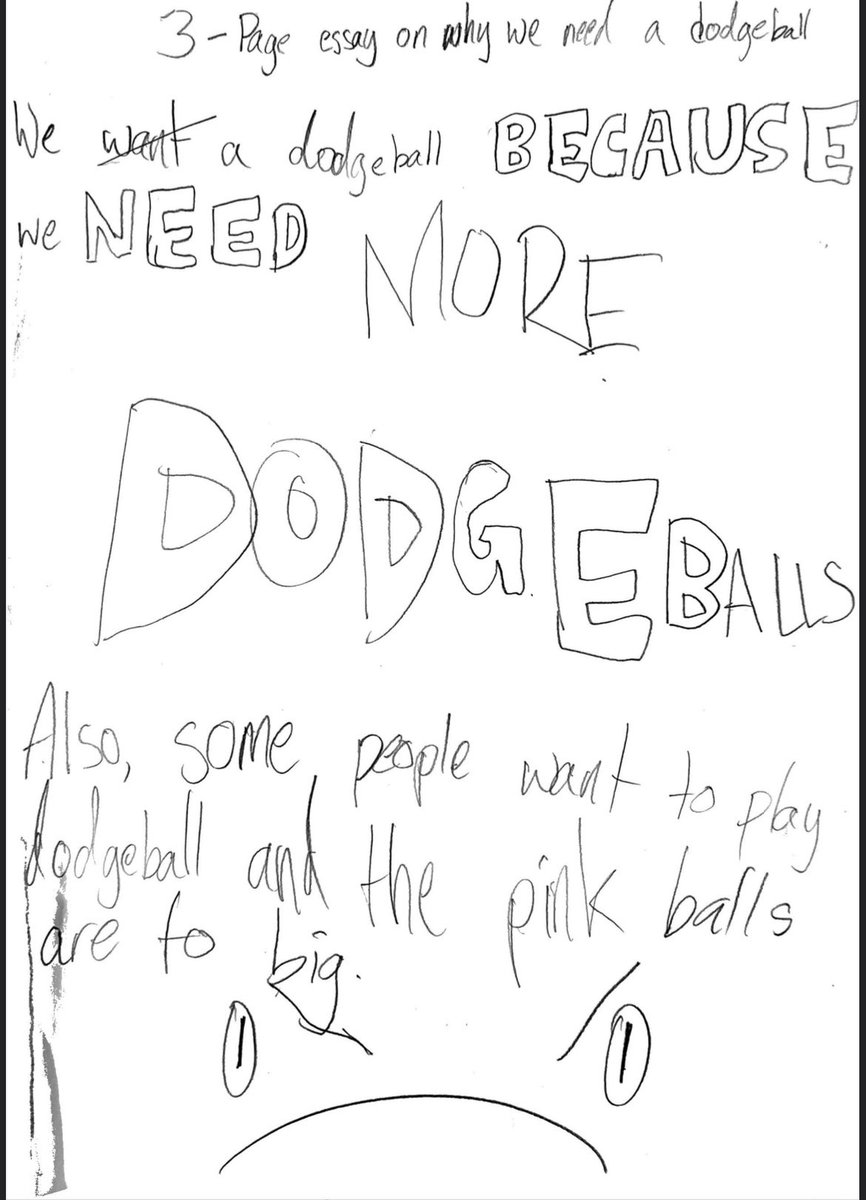 3-Page essay on why we need a dodgeball
We want a dodgeball BECAUSE
we NEED MORE
DODGEBALLS
Also, some people want to play
dodgeball and the pink balls
are to big.